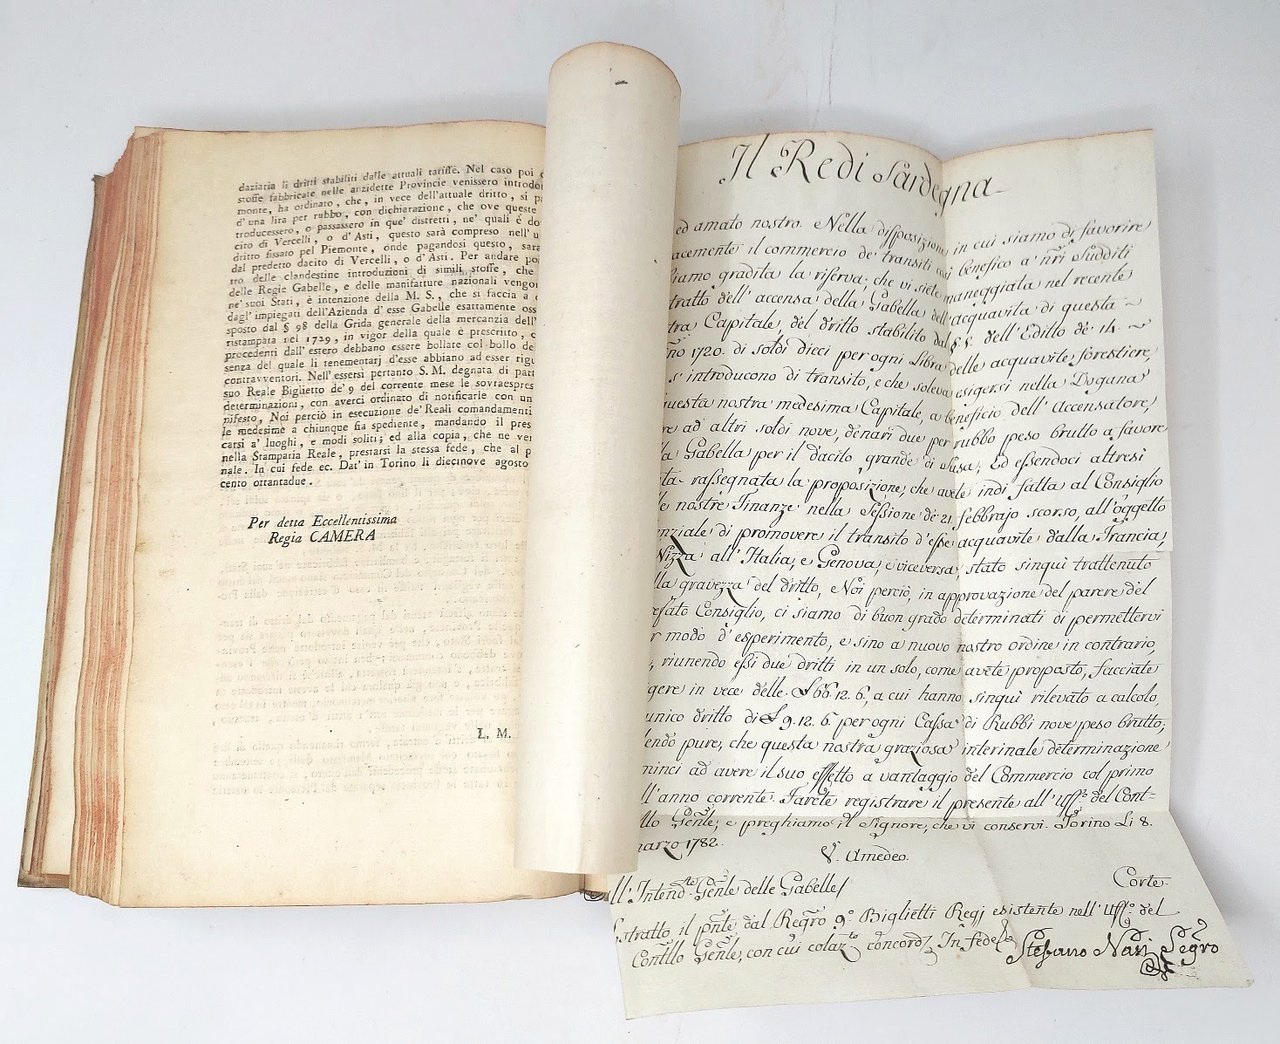 daziaria li dritti stabiliti dalle attuali tariffe. Nel caso poi
stoffe fabbricate nelle anzidette Provincie venissero introdo
monte, ha ordinato, che, in vece dell'attuale dritto, si p
d'una lira per rubbo, con dichiarazione, che ove queste
troducessero, o passassero in que' distretti, ne' quali è do
cito di Vercelli, o d'Asti, questo sarà compreso nell'u
dritto fissato pel Piemonte, onde pagandosi questo, sara
dal predetto dacito di Vercelli, o d'Asti. Per andare poi
tro delle clandestine introduzioni di simili stoffe, che
delle Regie Gabelle, e delle manifatture nazionali vengon
ne' suoi Stati, è intenzione della M. S., che si faccia a
dagl'impiegati dell'Azienda d'esse Gabelle esattamente oss
sposto dal § 98 della Grida generale della mercanzia dell'
ristampata nel 1729, in vigor della quale è prescritto, c
procedenti dall'estero debbano essere bollate col bollo de
senza del quale li tenementarj d'esse abbiano ad esser rigu
contravventori. Nell'essersi pertanto S. M. degnata di part
suo Reale Biglietto de' 9 del corrente mese le sovraespres
determinazioni, con averci ordinato di notificarle con un
nifesto, Noi perciò in esecuzione de' Reali comandamenti
le medesime a chiunque fia spediente, mandando il pres
carsi a' luoghi, e modi soliti; ed alla copia, che ne ver
nella Stamparia Reale, prestarsi la stessa fede, che al p
nale. In cui fede ec. Dat' in Torino li diecinove agosto
cento ottantadue.
Per detta Eccellentissima
Regia CAMERA
L. M.
Il Re di Sardegna
ed amato nostro. Nella disposizione in cui siamo di favorire
acemente il commercio de' transiti così benefico a' nr̃i Sudditi
siamo gradita la riserva, che vi siete maneggiata nel recente
tratto dell'accensa della Gabella dell'acquavita di questa
tra Capitale, del dritto stabilito dal §. 5. dell'Editto de' 14.
1720. di soldi dieci per ogni Libra delle acquavite forestiere,
s'introducono di transito, e che soleva esigersi nella Dogana
questa nostra medesima Capitale, a beneficio dell'Accensatore,
re ad altri soldi nove, denari due per rubbo peso brutto a favore
la Gabella per il dacito grande di Susa; Ed essendoci altresì
ta rassegnata la proposizione, che avete indi fatta al Consiglio
le nostre Finanze nella Sessione de' 21. febbrajo scorso, all'oggetto
nziale di promovere il transito d'esse acquavite dalla Francia,
Nizza all'Italia, e Genova, e viceversa stato sinquì trattenuto
lla gravezza del dritto, e Noi perciò, in approvazione del parere del
efato Consiglio, ci siamo di buon grado determinati di permettervi
r modo d'esperimento, e sino a nuovo nostro ordine in contrario,
, riunendo essi due dritti in un solo, come avete proposto, facciate
gere in vece delle 12. 6, a cui hanno sinquì rilevato a calcolo,
unico dritto di £ 9. 12. 6 per ogni Cassa di Rubbi nove peso brutto;
lendo pure, che questa nostra graziosa interinale determinazione
minci ad avere il suo effetto a vantaggio del Commercio col primo
ll'anno corrente. Farete registrare il presente all'Uff.º del Cont-
llo Gen̄le, e preghiamo il Signore, che vi conservi. Torino Li 8.
marzo 1782.
V. Amedeo.
Corte
ll'Intend.te Gen̄le delle Gabelle
stratto il pn̄te dal Regr̄o 9.º Biglietti Regj esistente nell'Uff.º del
Contllo Gen̄le, con cui colaz.to concorda, In fede
Stefano Nasi Segro